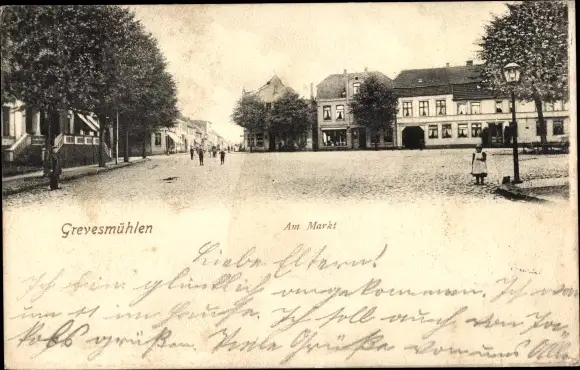 Grevesmühlen
Am Markt
Liebe Eltern!
Ich bin glücklich angekommen. Ich
im Hause. Ich soll auch von
grüßen. Viele Grüße von uns Allen